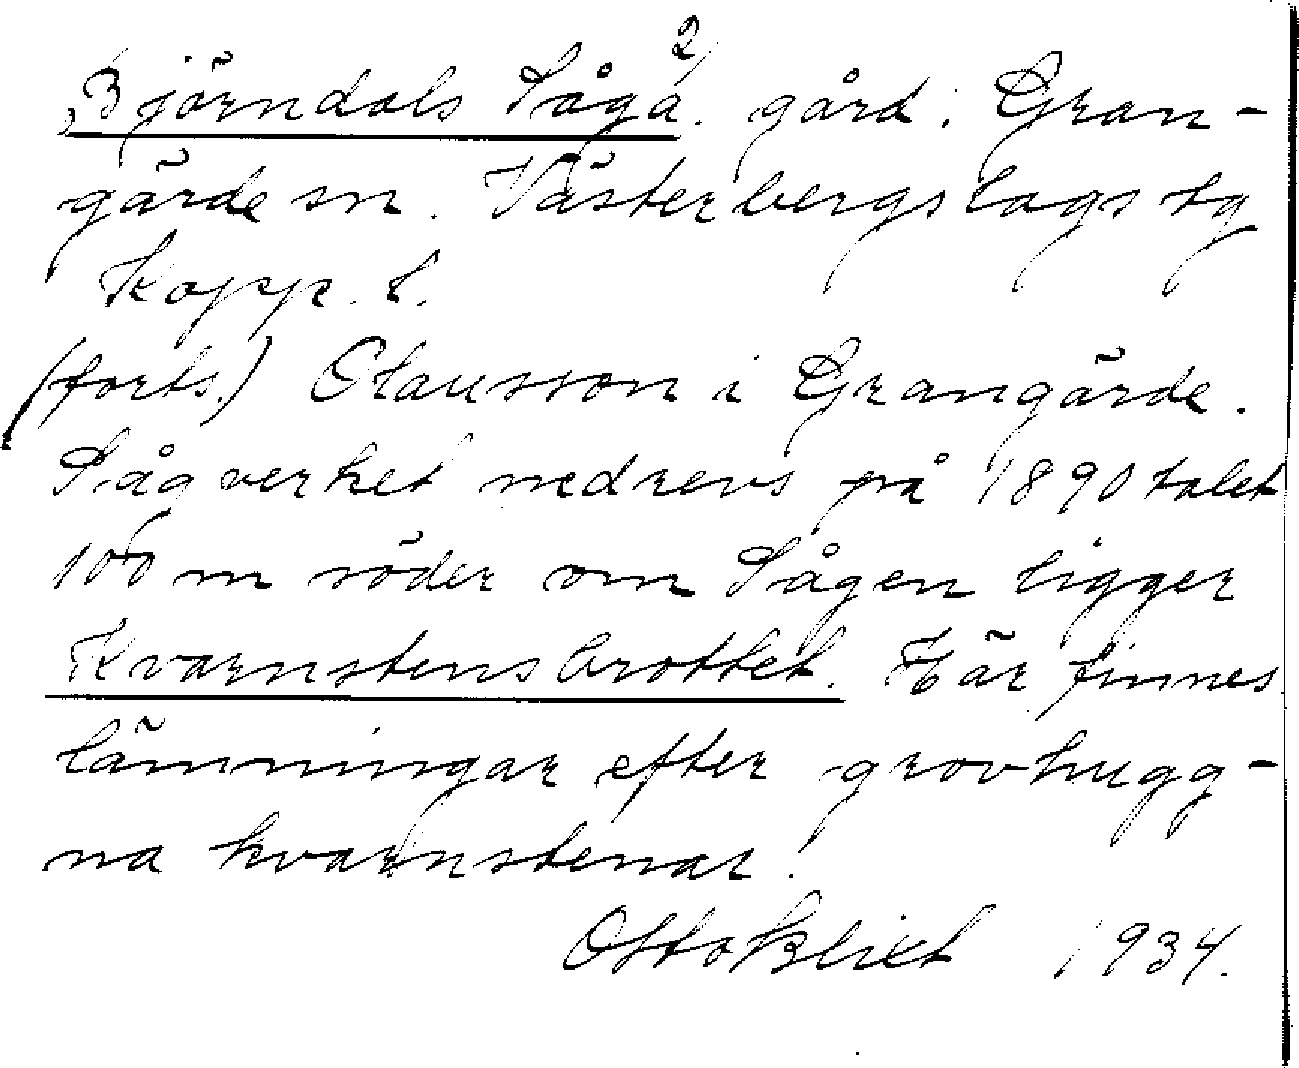 Björndals Såga². gård. Gran-
gärde sn. Västerbergslags tg
Kopp. l.
(forts.) Olausson i Grangärde.
Sågverket nedrevs på 1890 talet
100 m söder om Sågen ligger
Kvarnstensbrottet. Här finnes
lämningar efter grovhugg-
na kvarnstenar.
Otto Blixt 1934.